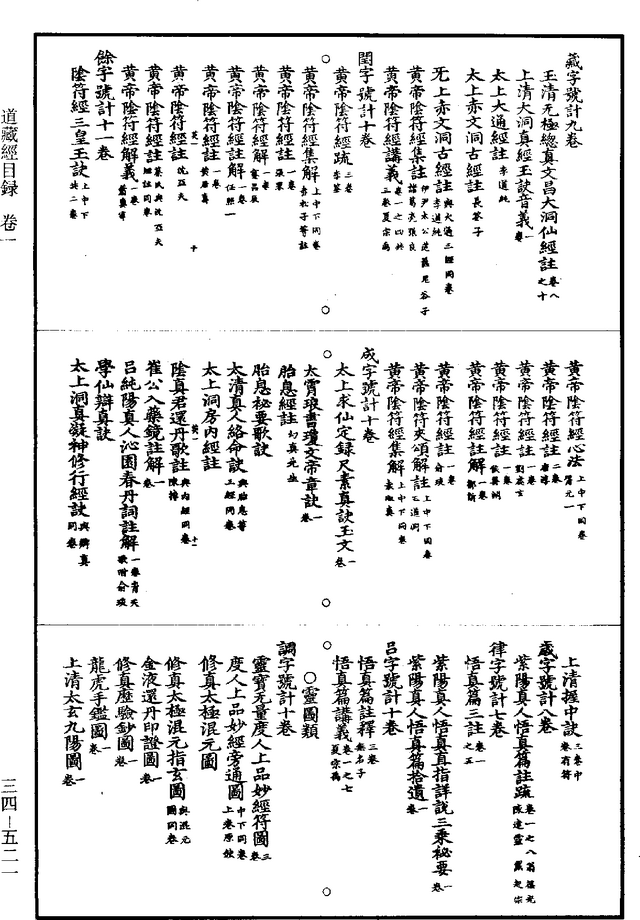 道藏經目録 卷一
藏字號計九卷
玉清无極總真文昌大洞仙經註 卷八之十
上清大洞真經玉訣音義 一卷
太上大通經註 李道純
太上赤文洞古經註 長筌子
无上赤文洞古經註 與大通二經同卷 李道純
黄帝陰符經集註 伊尹太公范蠡鬼谷子諸葛亮張良
黄帝陰符經講義 卷一之四共三卷夏宗禹
閏字號計十卷
黄帝陰符經疏 三卷 李筌
黄帝陰符經集解 上中下同卷 赤松子等註
黄帝陰符經註 一卷 張果
黄帝陰符經解 一卷 蹇昌辰
黄帝陰符經註解 一卷 任照一
黄帝陰符經註 一卷 黄居真
黄帝陰符經註 沈亞夫
黄帝陰符經註 蔡氏與沈亞夫經註同卷
黄帝陰符經解義 一卷 蕭真宰
餘字號計十一卷
陰符經三皇玉訣 上中下共二卷
黄帝陰符經心法 上中下同卷 胥元一
黄帝陰符經註 二卷 唐淳
黄帝陰符經註 一卷 劉處玄
黄帝陰符經註 一卷 侯善淵
黄帝陰符經註解 一卷 鄒訢
黄帝陰符經註 一卷 俞琰
黄帝陰符夾頌解註 上中下同卷 王道淵
黄帝陰符經集解 上中下同卷 袁淑真
成字號計十卷
太上求仙定録尺素真訣玉文 一卷
太霄琅書瓊文帝章訣 一卷
胎息經註 幻真先生
胎息秘要歌訣
太清真人絡命訣 與胎息等三經同卷
太上洞房内經註
陰真君還丹歌註 與内經同卷 陳摶
崔公入藥鏡註解 一卷
吕純陽真人沁園春丹詞註解 一卷青天歌附俞琰
學仙辯真訣
太上洞真凝神修行經訣 與辯真同卷
上清握中訣 三卷中卷有符
歲字號計八卷
紫陽真人悟真篇註疏 卷一之八翁葆光陳達靈 戴起宗
律字號計七卷
悟真篇三註 卷一之五
紫陽真人悟真直指詳說三乘秘要 一卷
紫陽真人悟真篇拾遺 一卷
吕字號計十卷
悟真篇註釋 三卷 無名子
悟真篇講義 卷一之七 夏宗禹
○靈圖類
調字號計十卷
靈寶无量度人上品妙經符圖 三卷
度人上品妙經旁通圖 中下同卷上卷原缺
修真太極混元圖
修真太極混元指玄圖 與混元圖同卷
金液還丹印證圖 一卷
修真歷驗鈔圖 一卷
龍虎手鑑圖 一卷
上清太玄九陽圖 一卷
三四—五二一